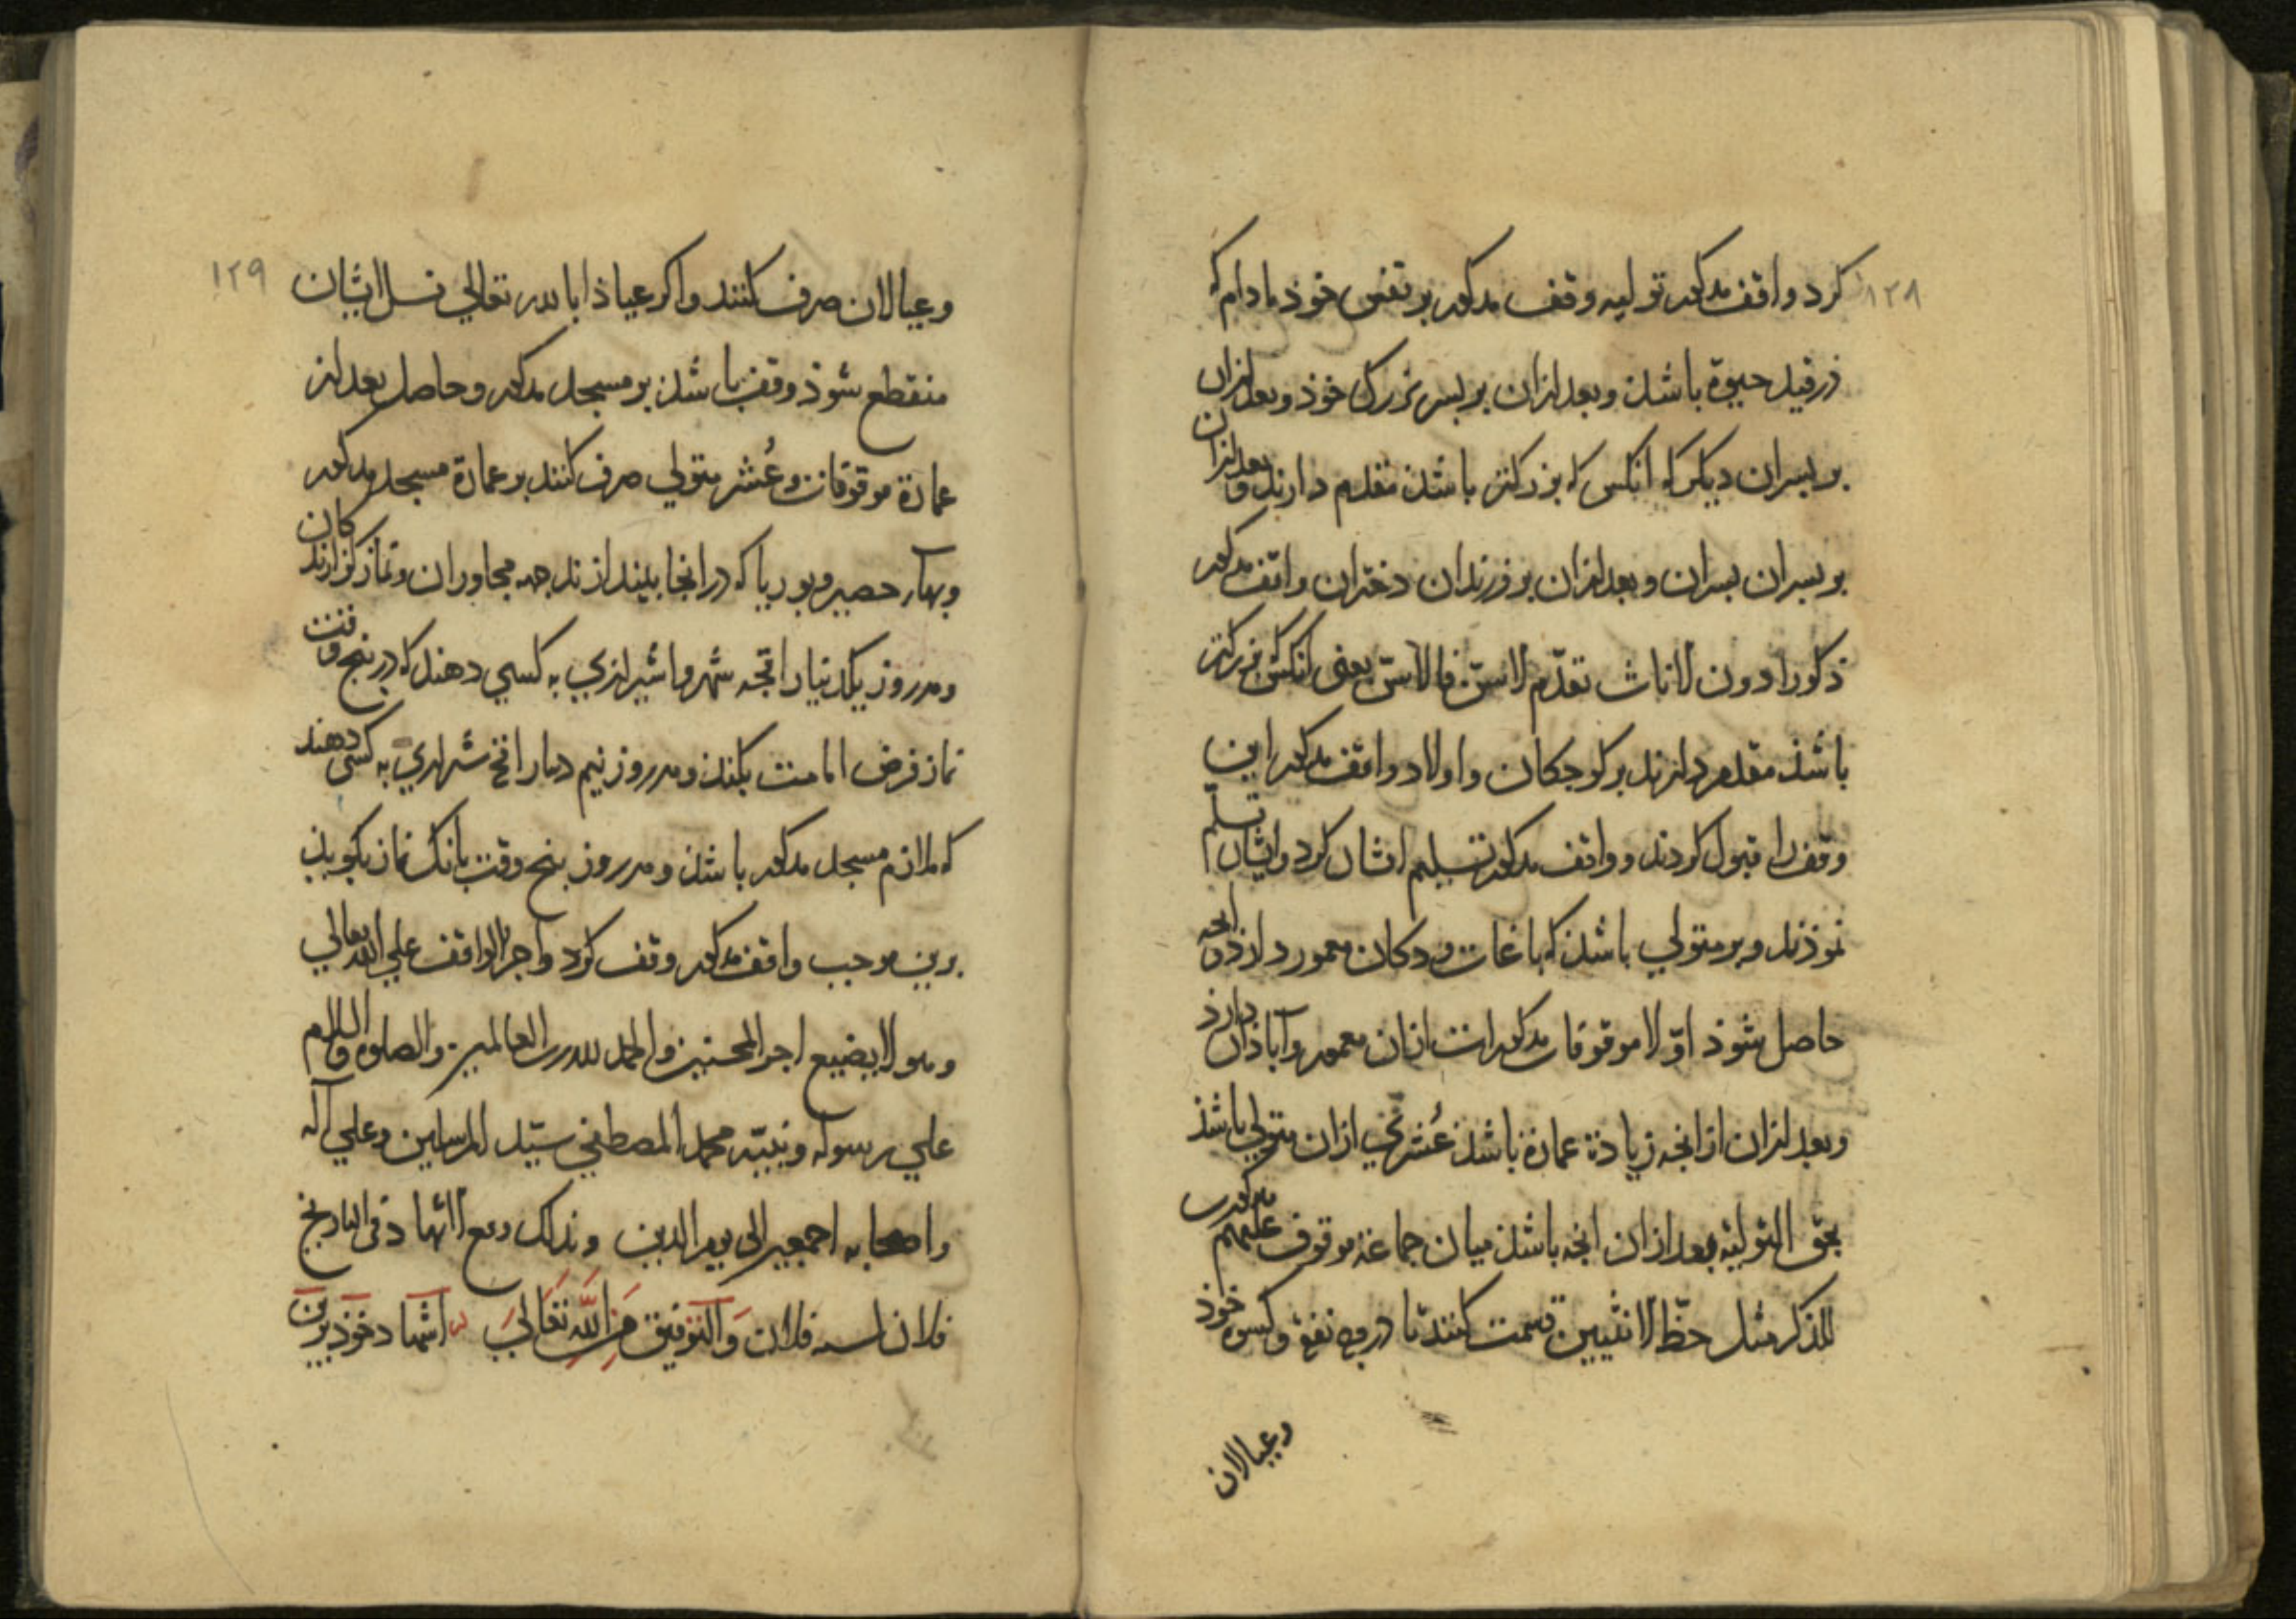 ۱۲۸
کرد واقف مذکور تولیه وقف مذکور بر نفس خوذ مادام که
در قید حیوة باشذ و بعد ازان بر بسر بزرک خوذ و بعد ازان
بر بسران دیکر که انکس که بزرکتر باشذ مقدم دارند و بعد ازان
بر بسران بسران و بعد ازان بر فرزندان دختران واقف مذکور
ذکورا دون الاناث تقدّم الاسنّ فالاسنّ یعنی انکس که بزرکتر
باشذ مقدم دارند بر کوجکان و اولاد واقف مذکور این
وقف را قبول کردند و واقف مذکور تسلیم ایشان کرد و ایشان تسلّم
نموذند و بر متولی باشذ که باغات و دکان معمور دارذ و انجه
حاصل شوذ اوّلا موقوفات مذکور است ازان معمور و آباذان دارذ
و بعد ازان از انجه زیادة عمارة باشذ عُشری ازان متولی باشذ
بحق التولیة و بعد ازان انجه باشذ میان جماعة موقوف علیهم مذکور
للذکر مثل حظّ الانثیین قسمت کنند تا در وجه نفقه و کسوه خوذ
و عیالان
۱۲۹
و عیالان صرف کنند و اکر عیاذا بالله تعالی نسل ایشان
منقطع شوذ وقف باشذ بر مسجد مذکور و حاصل بعد از
عمارة موقوفات و عُشر متولی صرف کنند بر عمارة مسجد مذکور
و بهآء حصیر و بوریا که در انجا بیندازند جهه مجاوران و نماز کزارندکان
و هر روز یکدینار اقجه شهروا شیرازی به کسی دهند که در بنج وقت
نماز فرض امامت بکند و هر روز نیم دینار اقجه شیرازی به کسی دهند
که ملازم مسجد مذکور باشذ و هر روز بنج وقت بانک نماز بکویذ
برین موجب واقف مذکور وقف کرد و اجر الواقف علی الله تعالی
و هو لا یضیع اجر المحسنین و الحمد لله رب العالمین و الصلوة و السلام
علی رسوله و نبیّه محمد المصطفی سیّد المرسلین و علی آله
و اصحابه اجمعین الی یوم الدین و بذلک وقع الاشهاد فی التاریخ
فلان لسنه فلان و التوفیق من الله تعالی اشهاد خوذ برین